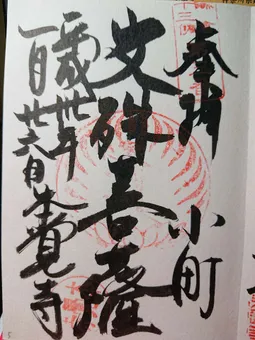 奉拝　小町
文殊菩薩
平成卅年
一月廿六日　本覺寺